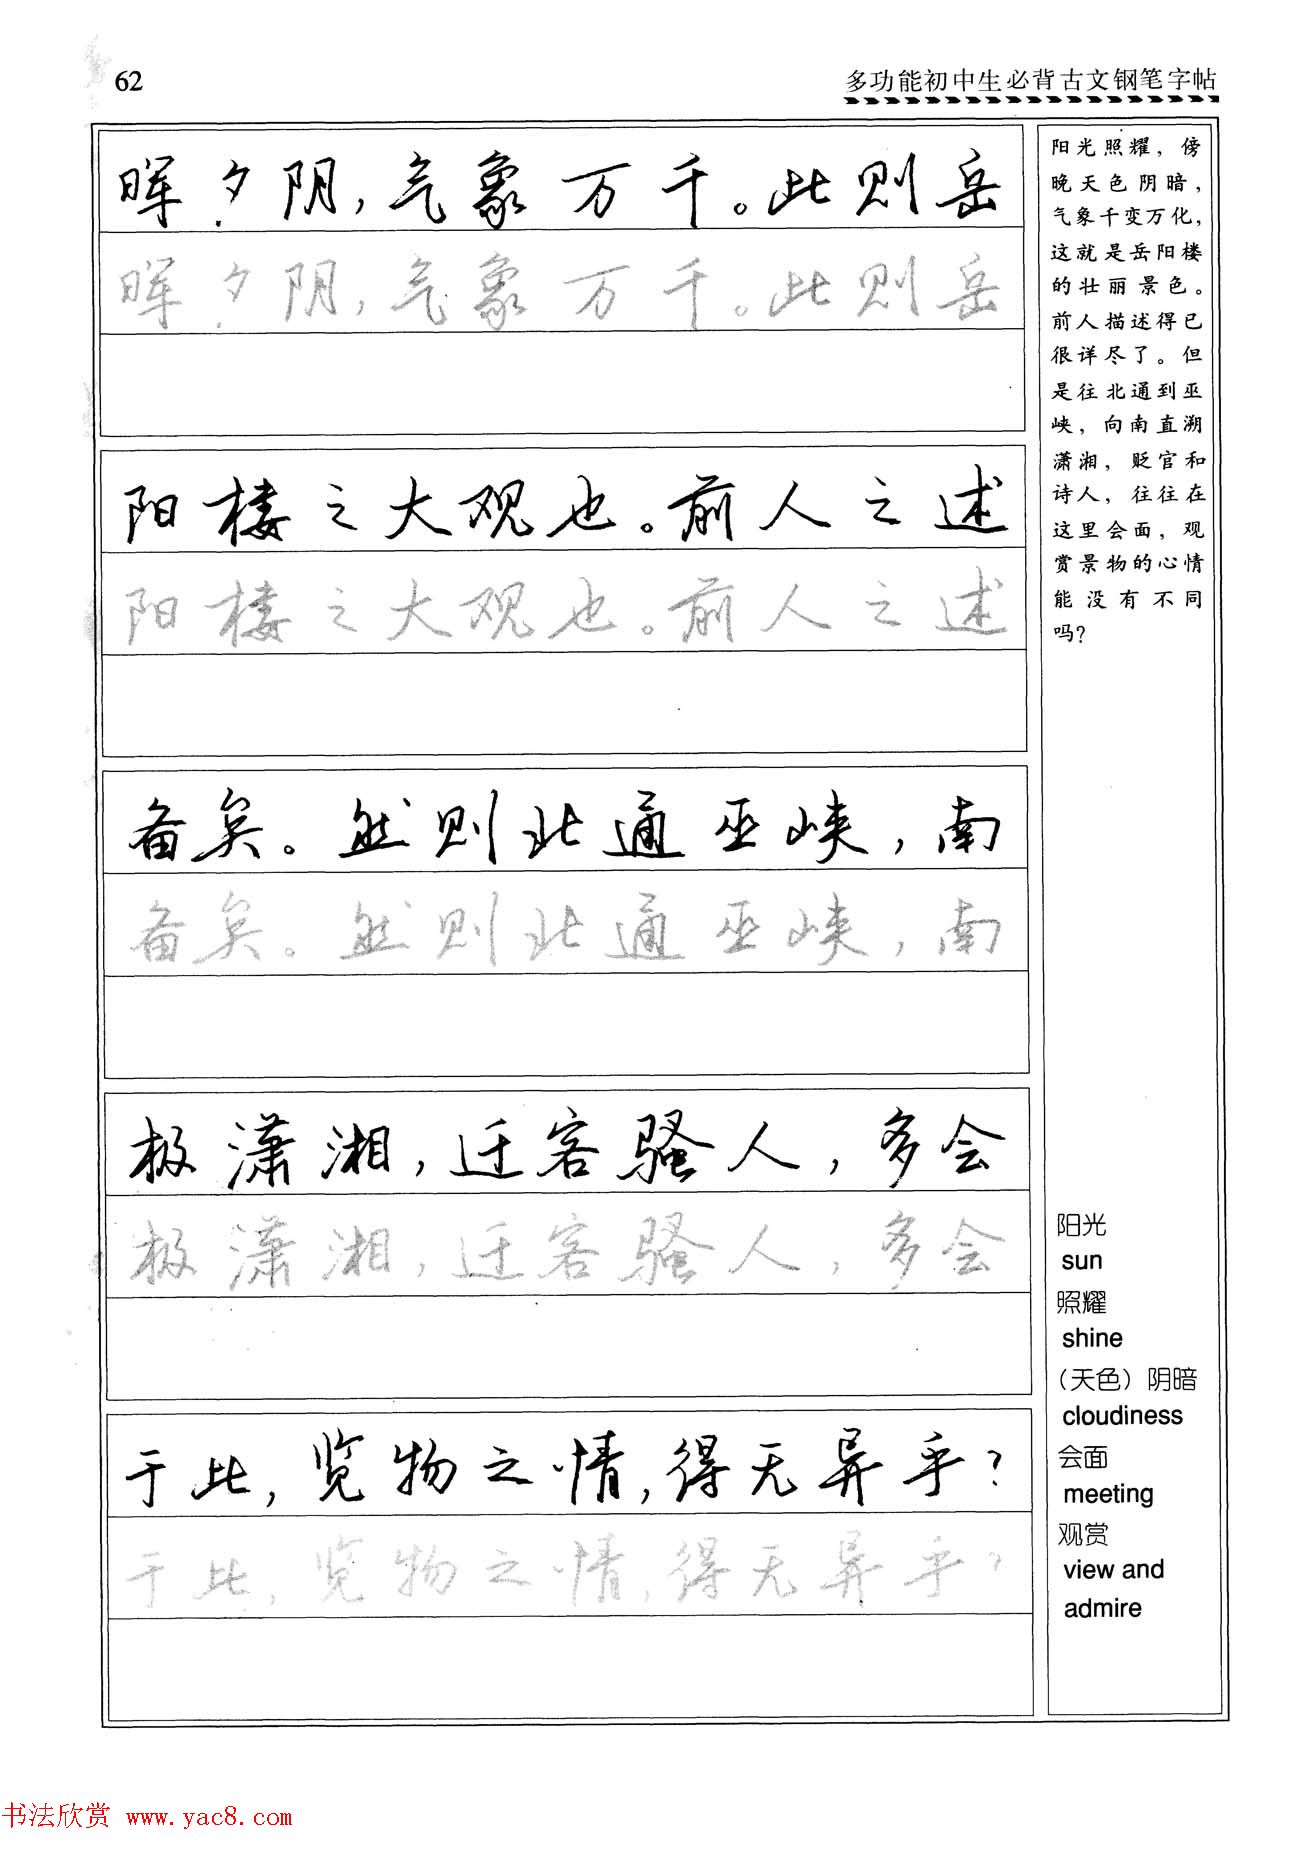 62
多功能初中生必背古文钢笔字帖
晖夕阴,气象万千。此则岳
晖夕阴,气象万千。此则岳
阳楼之大观也。前人之述
阳楼之大观也。前人之述
备矣。然则北通巫峡,南
备矣。然则北通巫峡,南
极潇湘,迁客骚人,多会
极潇湘,迁客骚人,多会
于此,览物之情,得无异乎?
于此,览物之情,得无异乎?
阳光照耀,傍
晚天色阴暗,
气象千变万化,
这就是岳阳楼
的壮丽景色。
前人描述得已
很详尽了。但
是往北通到巫
峡,向南直溯
潇湘,贬官和
诗人,往往在
这里会面,观
赏景物的心情
能没有不同
吗?
阳光
sun
照耀
shine
(天色)阴暗
cloudiness
会面
meeting
观赏
view and
admire
书法欣赏 www.yac8.com